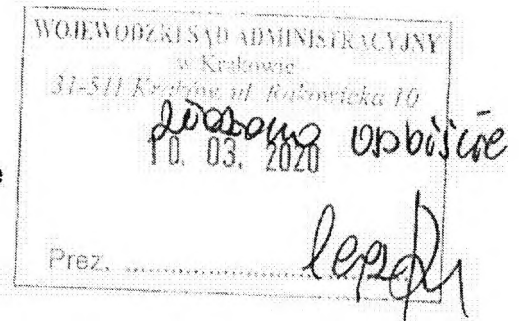 WOJEWÓDZKI SĄD ADMINISTRACYJNY
w Krakowie
31-511 Kraków, ul. Rakowicka 10
złożono osobiście
10. 03. 2020
Prez. ........................